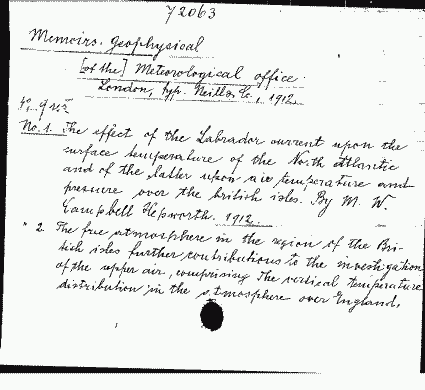 72063
Memoirs. Geophysical
[of the] Meteorological office.
London, typ. Neill & Co., 1912.
No. 1. The effect of the Labrador current upon the
surface temperature of the North Atlantic
and of the latter upon air temperature and
pressure over the british isles. By M. W.
Campbell Hepworth. 1912.
" 2. The free atmosphere in the region of the Bri-
tish isles further contributions to the investigation
of the upper air, comprising the vertical temperature
distribution in the atmosphere over England,